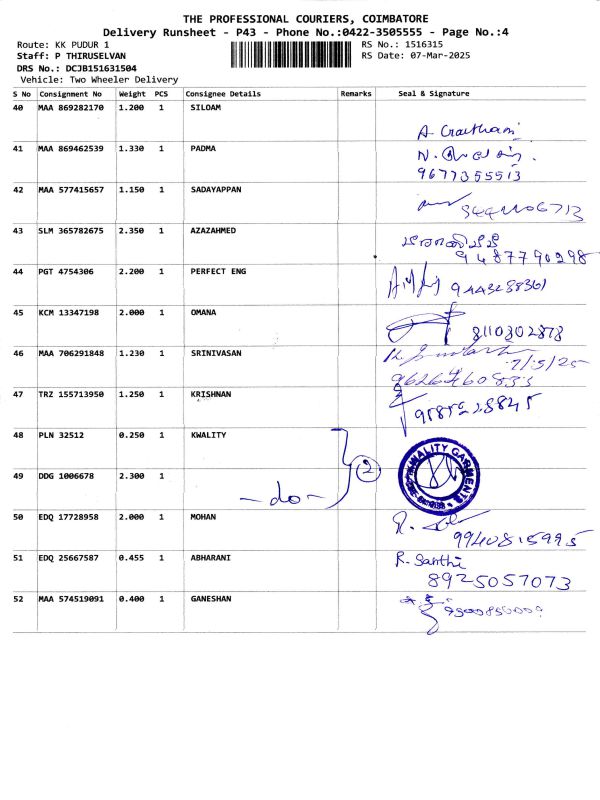 THE PROFESSIONAL COURIERS, COIMBATORE
Delivery Runsheet - P43 - Phone No.:0422-3505555 - Page No.:4
Route: KK PUDUR 1 RS No.: 1516315
Staff: P THIRUSELVAN RS Date: 07-Mar-2025
DRS No.: DCJB151631504
Vehicle: Two Wheeler Delivery
S No Consignment No Weight PCS Consignee Details Remarks Seal & Signature
40 MAA 869282170 1.200 1 SILOAM
41 MAA 869462539 1.330 1 PADMA
9677355513
42 MAA 577415657 1.150 1 SADAYAPPAN
43 SLM 365782675 2.350 1 AZAZAHMED
9487790298
44 PGT 4754306 2.200 1 PERFECT ENG
9443288361
45 KCM 13347198 2.000 1 OMANA
8110302878
46 MAA 706291848 1.230 1 SRINIVASAN
47 TRZ 155713950 1.250 1 KRISHNAN
48 PLN 32512 0.250 1 KWALITY
2
KWALITY GARMENTS
49 DDG 1006678 2.300 1
- do -
50 EDQ 17728958 2.000 1 MOHAN
9940815995
51 EDQ 25667587 0.455 1 ABHARANI R. Santhi
8925057073
52 MAA 574519091 0.400 1 GANESHAN